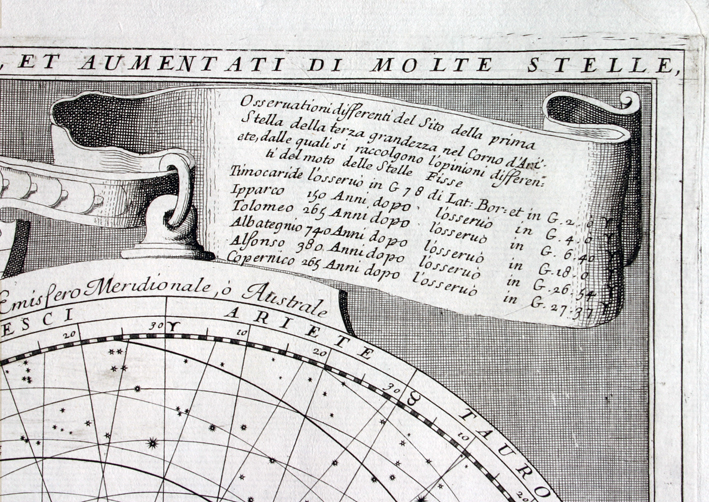 , ET AUMENTATI DI MOLTE STELLE,
Osseruationi differenti del Sito della prima
Stella della terza grandezza nel Corno d'Ari-
ete, dalle quali si raccolgono l'opinioni differen
ti del moto delle Stelle Fisse
Timocaride l'osseruò in G 7 8 di Lat: Bor: et in G. 2. 0 ♈
Ipparco 150 Anni dopo l'osseruò in G. 4. 0 ♈
Tolomeo 265 Anni dopo l'osseruò in G. 6. 40 ♈
Albategnio 740 Anni dopo l'osseruò in G. 18. 0 ♈
Alfonso 380 Anni dopo l'osseruò in G. 26. 54 ♈
Copernico 265 Anni dopo l'osseruò in G. 27. 37 ♈
Emisfero Meridionale, ò Australe
ESCI ARIETE TAURO
20 30 ♈ 10 20 30 ♉ 10 20